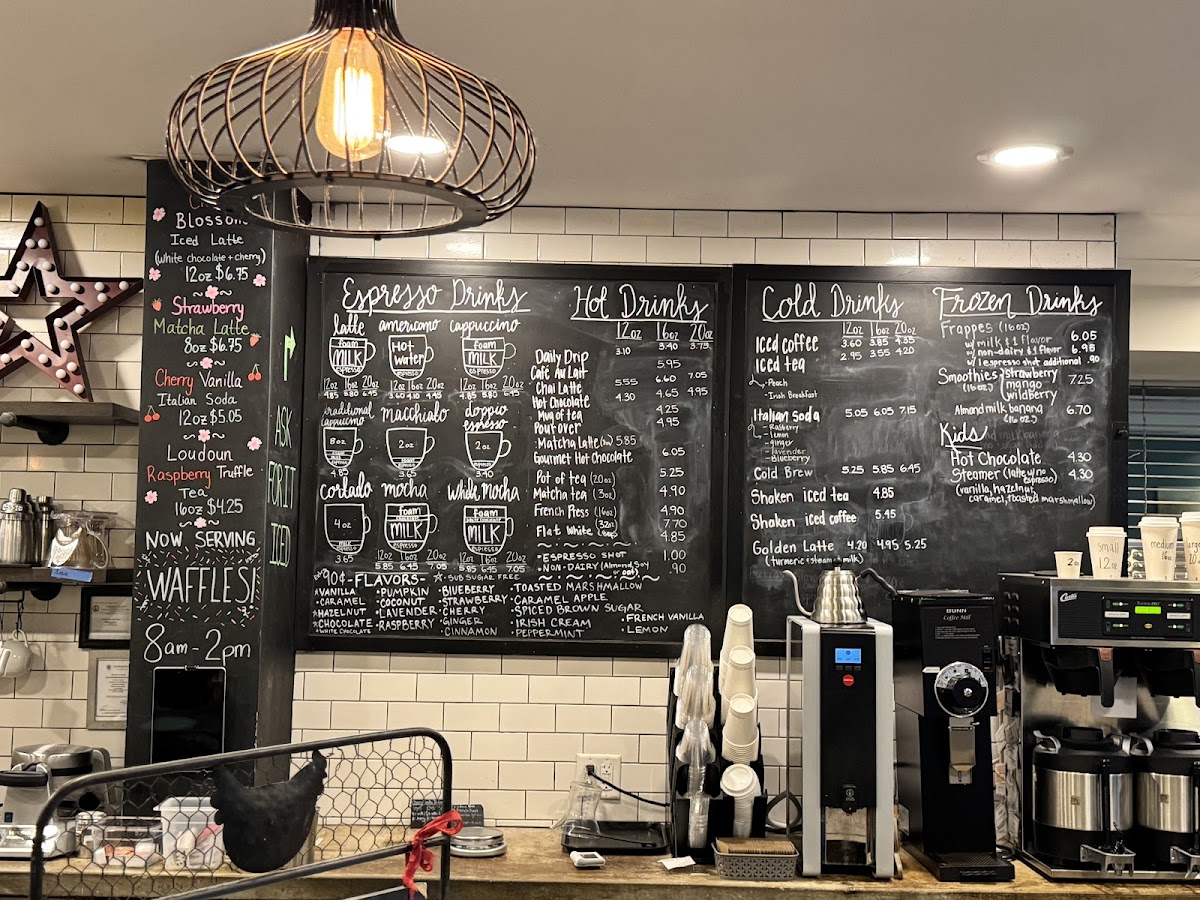 Blossom
Iced Latte
(white chocolate + cherry)
12oz $6.75
Strawberry
Matcha Latte
8oz $6.75
Cherry Vanilla
Italian Soda
12oz $5.05
Loudoun
Raspberry Truffle
Tea
16oz $4.25
NOW SERVING
WAFFLES!
8am-2pm
ASK
FOR IT
ICED
Espresso Drinks
latte americano cappuccino
foam MILK espresso
Hot water
foam MILK espresso
12oz 16oz 20oz 12oz 16oz 20oz 12oz 16oz 20oz
4.85 5.80 6.45 3.60 4.10 4.45 4.85 5.80 6.45
traditional cappuccino macchiato doppio espresso
8oz 2oz 2oz
4.65 3.65 3.40
cortado mocha white mocha
4oz
foam MILK espresso
foam MILK espresso
12oz 16oz 20oz 12oz 16oz 20oz
3.65 5.85 6.45 7.05 5.85 6.45 7.05
90¢-FLAVORS- ☆-SUB SUGAR FREE
VANILLA PUMPKIN BLUEBERRY TOASTED MARSHMALLOW
CARAMEL COCONUT STRAWBERRY CARAMEL APPLE
HAZELNUT LAVENDER CHERRY SPICED BROWN SUGAR
CHOCOLATE RASPBERRY GINGER IRISH CREAM FRENCH VANILLA
WHITE CHOCOLATE CINNAMON PEPPERMINT LEMON
Hot Drinks
12oz 16oz 20oz
Daily Drip 3.10 3.40 3.75
Café Au Lait 5.95
Chai Latte 5.55 6.60 7.05
Hot Chocolate 4.30 4.65 4.95
Mug of tea 4.25
Pour over 4.95
Matcha Latte 5.85
Gourmet Hot Chocolate 6.05
Pot of tea (20oz) 5.25
Matcha tea (3oz) 4.90
French Press (16oz) 4.90
(32oz) 7.70
Flat White 4.85
-ESPRESSO SHOT 1.00
-NON-DAIRY (Almond, Soy, oat) .90
Cold Drinks
12oz 16oz 20oz
Iced coffee 3.60 3.85 4.35
Iced tea 2.95 3.55 4.20
-Peach
-Irish Breakfast
Italian soda 5.05 6.05 7.15
-Raspberry
-lemon
-ginger
-lavender
-Blueberry
Cold Brew 5.25 5.85 6.45
Shaken iced tea 4.85
Shaken iced coffee 5.45
Golden Latte 4.20 4.95 5.25
(turmeric + steam milk)
Frozen Drinks
Frappes (16oz)
w/ milk & 1 flavor 6.05
w/ non-dairy & 1 flavor 6.95
w/ 1 espresso shot additional .90
Smoothies (16oz) strawberry mango wildberry 7.25
Almond milk banana (16oz) 6.70
Kids
Hot Chocolate 4.30
Steamer (latte w/no espresso) 4.30
(vanilla, hazelnut, caramel, toasted marshmallow)
2oz
small
12oz
medium
BUNN
Coffee Mill
Curtis